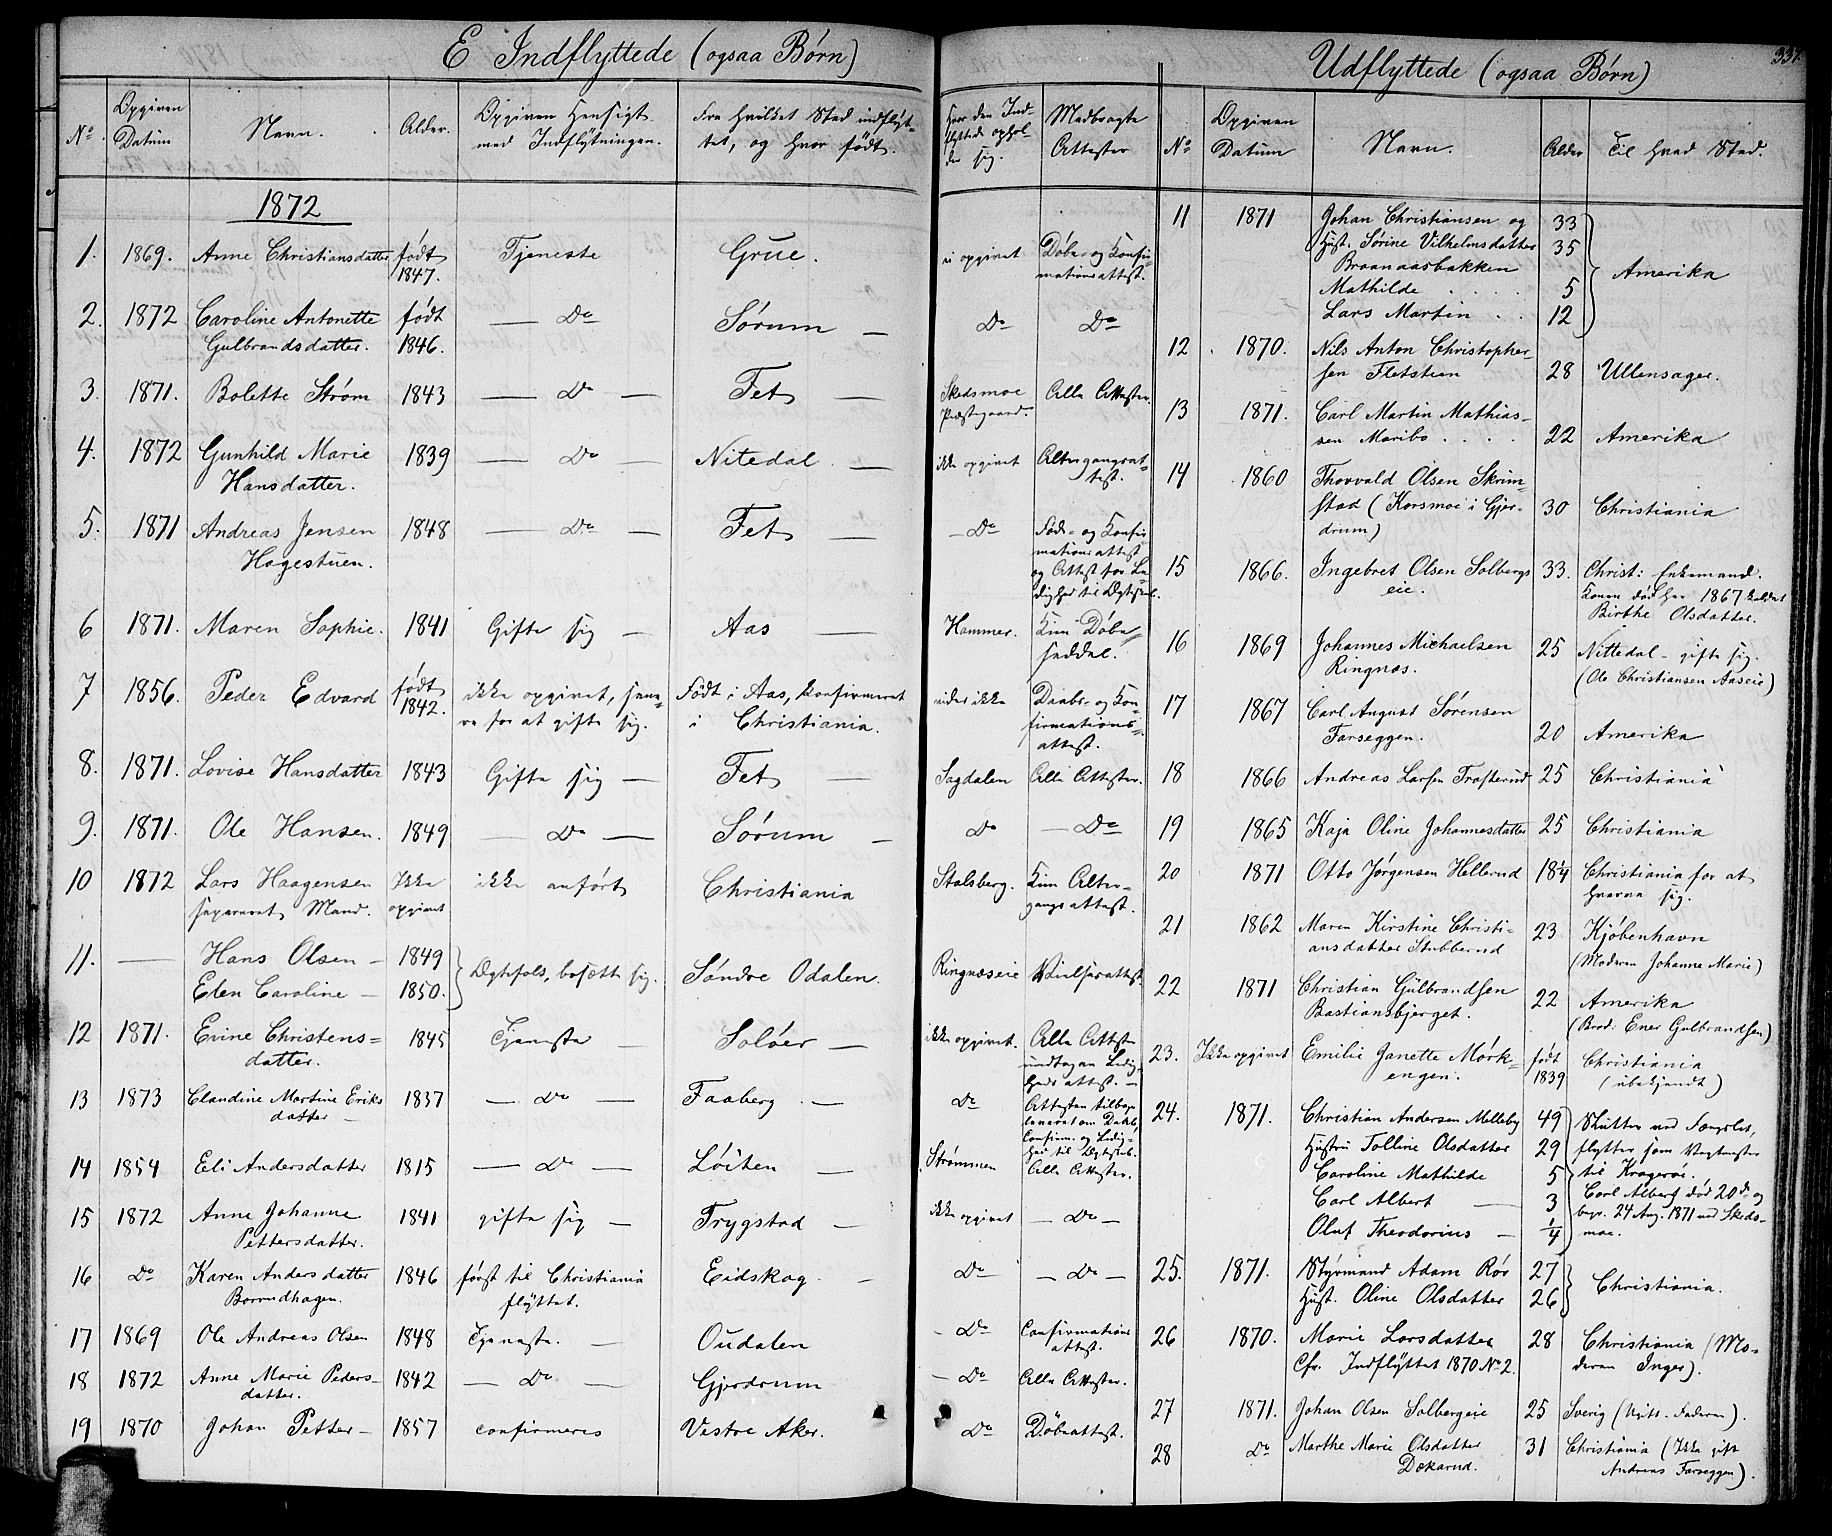 E Indflyttede (ogsaa Børn)
No. Opgiven Datum Navn. Alder. Opgiven Hensigt med Indflytningen. Fra hvilket Sted indflyttet, og hvor født. Hvor den Indflyttede opholder sig. Medbragte Attester
1872
1. 1869. Anne Christiansdatter født 1847. Tjeneste Grue. ei opgivet Døbe- og Konfirmationsattest.
2. 1872 Caroline Antonette Gulbrandsdatter. født 1846. — Do Sørum — Do Do
3. 1871. Bolette Strøm 1843 — Do — Fet — Skedsmoe Præstegaard. Alle Attester.
4. 1872 Gunhild Marie Hansdatter. 1839 — Do — Nitedal. — ikke opgivet Altergangsattest.
5. 1871 Andreas Jensen Hagestuen. 1848 — Do — Fet — — Do Føds- og Konfirmationsattest og Attest for Ledighed til Ægtesk.
6 1871. Maren Sophie. 1841 Gifte sig — Aas — Hammer. Kun Døbeseddel.
7 1856. Peder Edvard født 1842. ikke opgivet, senere for at gifte sig. Født i Aas, konfirmeret i Christiania. vides ikke Daabs- og Konfirmationsattest.
8. 1871. Lovise Hansdatter 1843 Gifte sig — Fet — Sagdalen Alle Attester.
9. 1871. Ole Hansen. 1849 — Do — Sørum — Do — Do
10 1872 Lars Haagensen separeret Mand. Ikke opgivet ikke anført Christiania Stalsberg. Kun Altergangsattest.
11. — Hans Olsen — 1849
Elen Caroline — 1850. Ægtefolk, bosætte sig. Søndre Odalen. Ringnæseie Vielsesattest.
12 1871. Evine Christensdatter. 1845 Tjeneste — Soløer — ikke opgivet. Alle Attester undtagen Ledighedsattest. —
13 1873 Claudine Martine Eriksdatter — 1837 — Do — Faaberg. — Do Attesten tilbageleveret om Daab, Confirm. og Ledighed til Ægtesk.
14 1854 Eli Andersdatter 1815 — Do — Løiten — Strømmen Alle Attester.
15 1872 Anne Johanne Pettersdatter. 1841 gifte sig — Trygstad — ikke opgivet — Do —
16 Do Karen Andersdatter Borrudhagen. 1846 først til Christiania flyttet. Eidskog. — Do — Do —
17 1869 Ole Andreas Olsen 1848 Tjeneste. — Oudalen — Do Confirmationsattest.
18 1872 Anne Marie Pedersdatter. 1842 — Do — Gjerdrum — Do Alle Attester.
19 1870 Johan Petter — 1857 confirmeres Vestre Aker. Do Døbeattest.
Udflyttede (ogsaa Børn)
337.
No Opgiven Datum Navn. Alder Til hvad Sted.
11 1871 Johan Christiansen og 33
Hust. Sørine Vilhelmsdatter 35
Braanaasbakken
Mathilde . . . . 5 Amerika
Lars Martin . . 12
12 1870. Nils Anton Christophersen Fletstien 28 Ullensager.
13 1871. Carl Martin Mathiassen Maribo . . . . 22 Amerika
14 1860 Thorvald Olsen Skrimstad (Korsmoe i Gjerdrum) 30 Christiania
15 1866. Ingebret Olsen Solbergseie. 33. Christ: Enkemand.
Konen død her 1867 kaldet
Birthe Olsdatter.
16 1869 Johannes Michaelsen Ringnæs. 25 Nittedal - gifte sig.
(Ole Christiansen Aaseie)
17 1867 Carl August Sørensen Farseggen. 20 Amerika
18 1866 Andreas Larsen Trosterud 25 Christiania
19 1865 Kaja Oline Johannesdatter 25 Christiania
20 1871 Otto Jørgensen Hellerud 18¼ Christiania for at hverve sig.
21 1862 Maren Kirstine Christiansdatter Stubberud 23 Kjøbenhavn
(Moderen Johanne Marie)
22 1871 Christian Gulbrandsen Bastiansbjerget. 22 Amerika
(Brod: Ener Gulbrandsen)
23. Ikke opgivet Emilie Janette Mørkengen. født 1839 Christiania
(ubekjendt)
24. 1871. Christian Andersen Melleby 49 Slutter ved Fængslet,
Hustru Tolline Olsdatter 29 flytter som Vagtmester
Caroline Mathilde 5 til Kragerøe.
Carl Albert — 3 Carl Albert død 20de og
Oluf Theodorius — ¼ begr. 24 Aug. 1871 ved Skedsmoe.
25. 1871. Styrmand Adam Rør 27
Hust. Oline Olsdatter 26 Christiania.
26 1870. Marie Larsdatter 28 Christiania (Moderen Inger).
Cfr. Indflyttet 1870 No 2.
27 1871. Johan Olsen Solbergeie 25 Sverig (Faderen).
28 Do Marthe Marie Olsdatter Dokarud. 31 Christiania (Ikke gift
Andreas Farseggen).